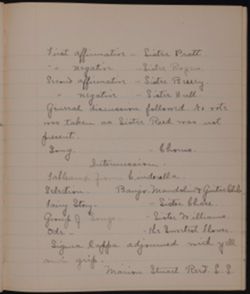 First affirmative - Sister Pratt
" negative - Sister Rogers
Second affirmative - Sister Berry
" negative - Sister Hull
General discussion followed. No vote
was taken as Sister Reed was not
present.
Song - Chorus.
Intermission.
Tableaux from Cinderella.
Selection - Banjo, Mandolin & Guitar Club
Fairy Story - Sister Chase.
Group of Songs - Sister Williams.
Ode - The Sweetest Flower.
Sigma Kappa adjourned with yell
and grip.
Marion Stuart Reed.